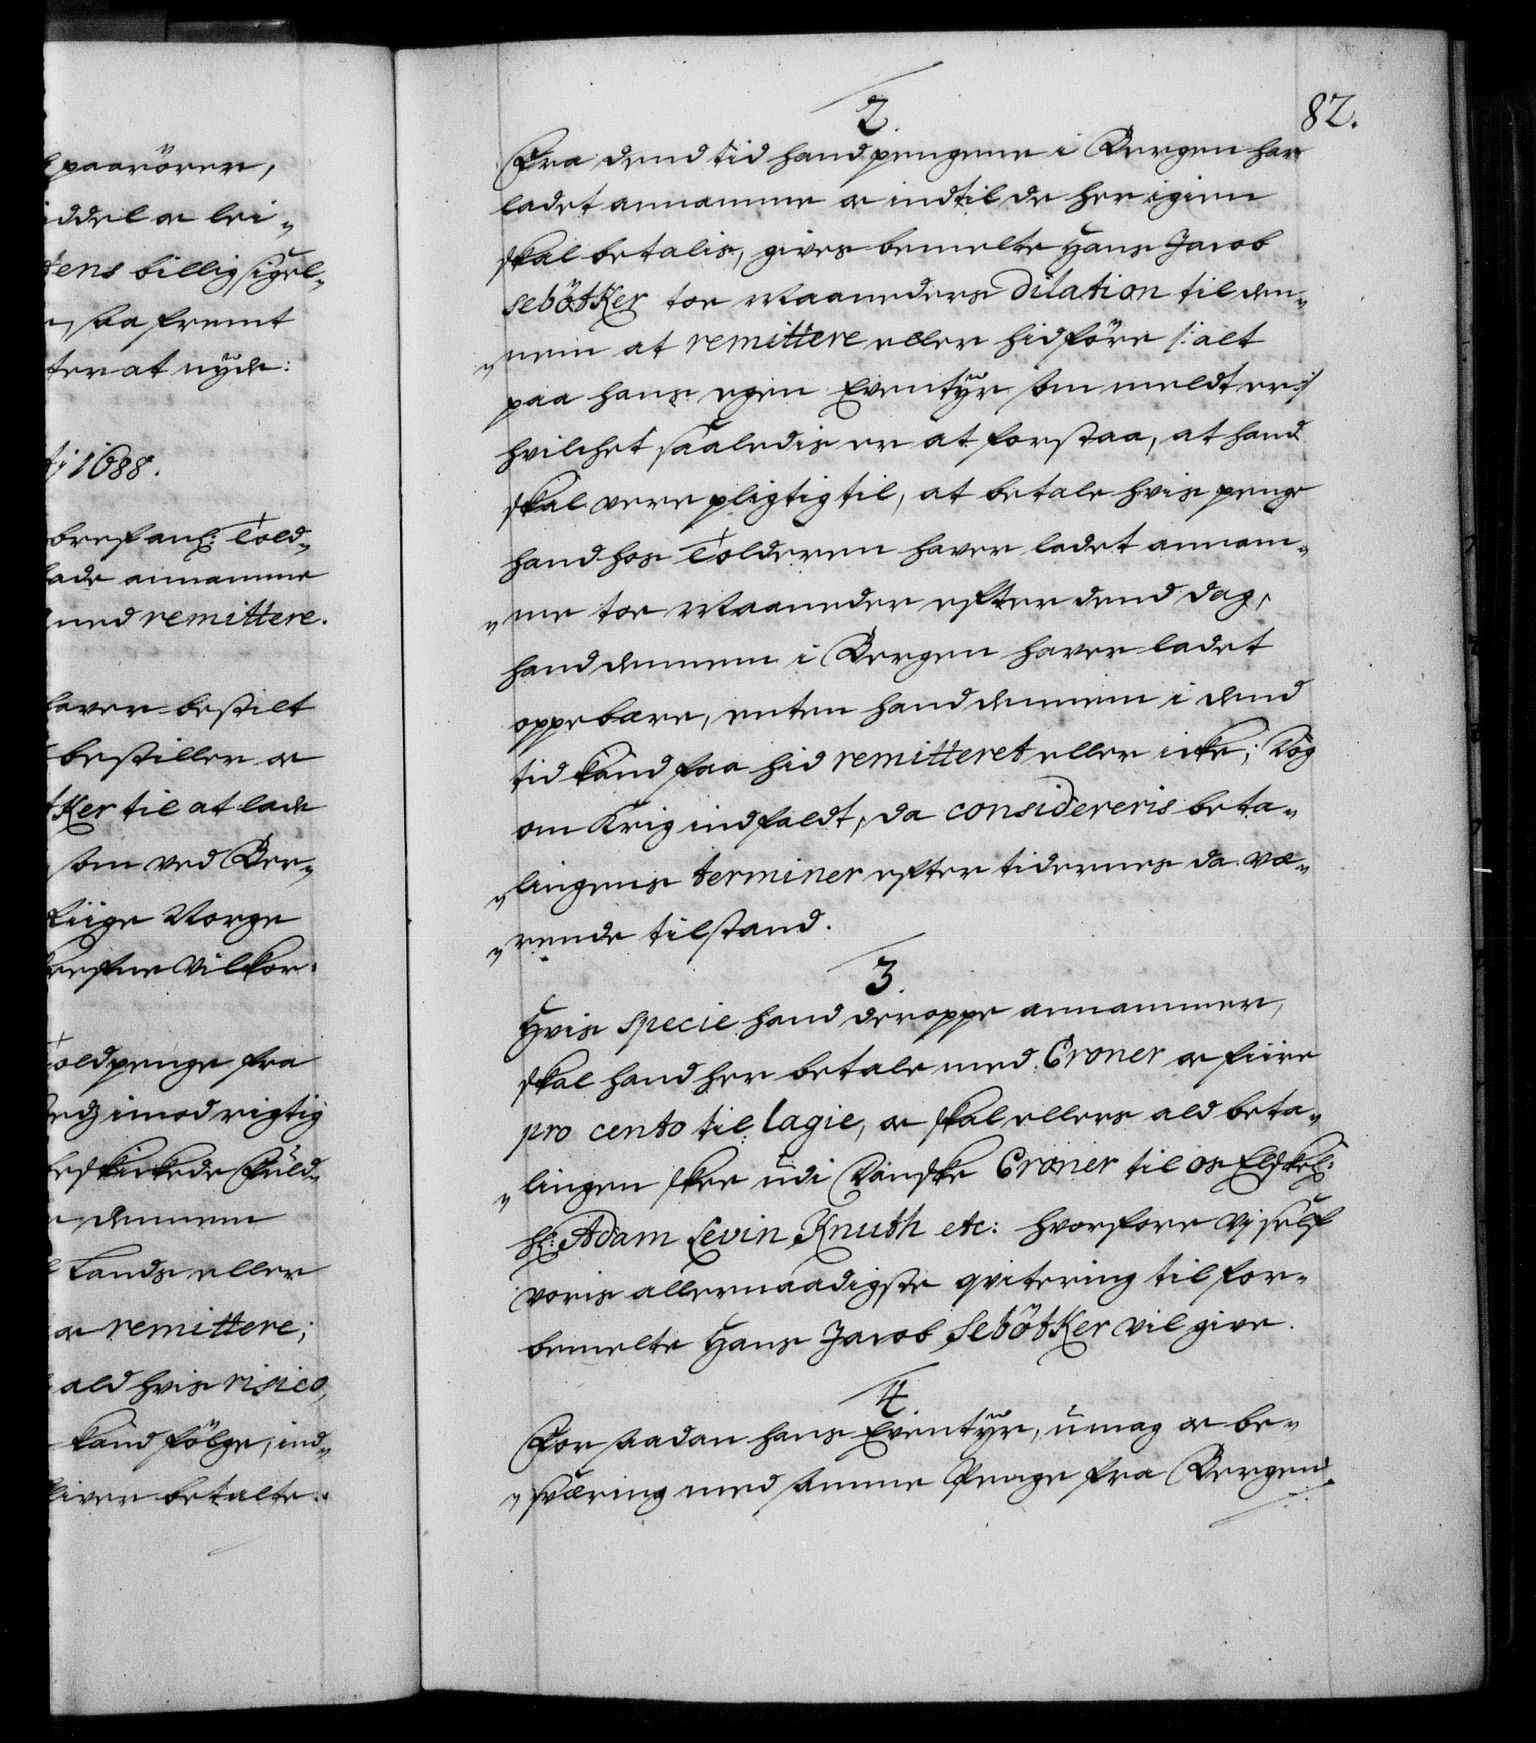 paarörer,
iddel oc lei-
dens billig sigel-
, saa fremt
ter at nyde:
1688.
bref ank: Told-
lade annamme
med remittere.
haver bestilt
bestiller oc
tker til at lade
som ved Ber-
Riige Norge
Vilkor.
Toldpenge fra
imod rigtig
edskickede Fuld-
dennem
Lands eller
oc remittere;
ald hvis risico,
kand fölge, ind-
bliver betalte.
82.
2.
Fra dend tid hand pengene i Bergen har
ladet annamme oc indtil de her igien
skal betalis, gives bemelte Hans Jacob
Sebötker toe Maaneders Dilation til den-
nem at remittere eller hidföre /: alt
paa hans egen Eventyr som meldt er :/
hvilchet saaledis er at forstaa, at hand
skal vere pligtig til, at betale hvis penge
hand hos Tolderen haver ladet annam-
me toe Maaneder efter dend dag,
hand dennem i Bergen haver ladet
oppebære, enten hand dennem i dend
tid kand faa hid remitteret eller icke; Dog
om Krig indfaldt, da considereris beta-
lingens terminer efter tidernes da væ-
rende tilstand.
3.
Hvis specie hand deroppe annammer,
skal hand her betale med Croner oc fiire
pro cento til lagie, oc skal ellers ald beta-
lingen skee udi Danske Croner til os Elskel:
H: Adam Levin Knuth etc: hvorfore Vi self
voris allernaadigste qvitering til for-
bemelte Hans Jacob Sebötker vil give.
4.
For saadan hans Eventyr, umag oc be-
sværing med samme Penge fra Bergen